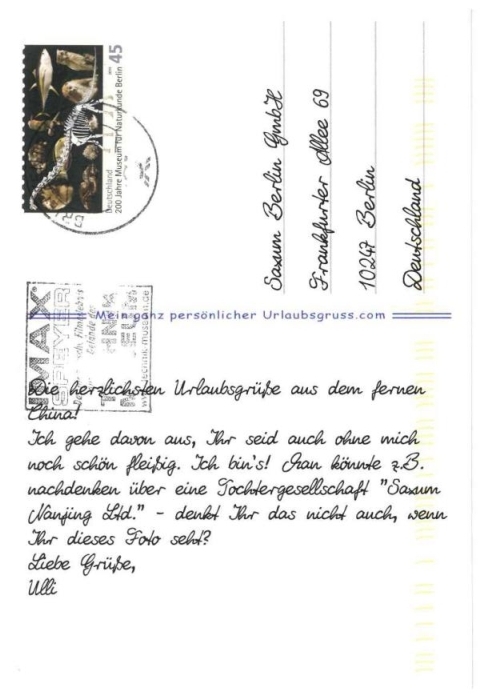 45
Deutschland
200 Jahre Museum für Naturkunde Berlin
Saxum Berlin GmbH
Frankfurter Allee 69
10247 Berlin
Deutschland
IMAX
SPEYER
Mein ganz persönlicher Urlaubsgruss.com
Die herzlichsten Urlaubsgrüße aus dem fernen
China!
Ich gehe davon aus, Ihr seid auch ohne mich
noch schön fleißig. Ich bin's! Man könnte z.B.
nachdenken über eine Tochtergesellschaft "Saxum
Nanjing Ltd." - denkt Ihr das nicht auch, wenn
Ihr dieses Foto seht?
Liebe Grüße,
Ulli